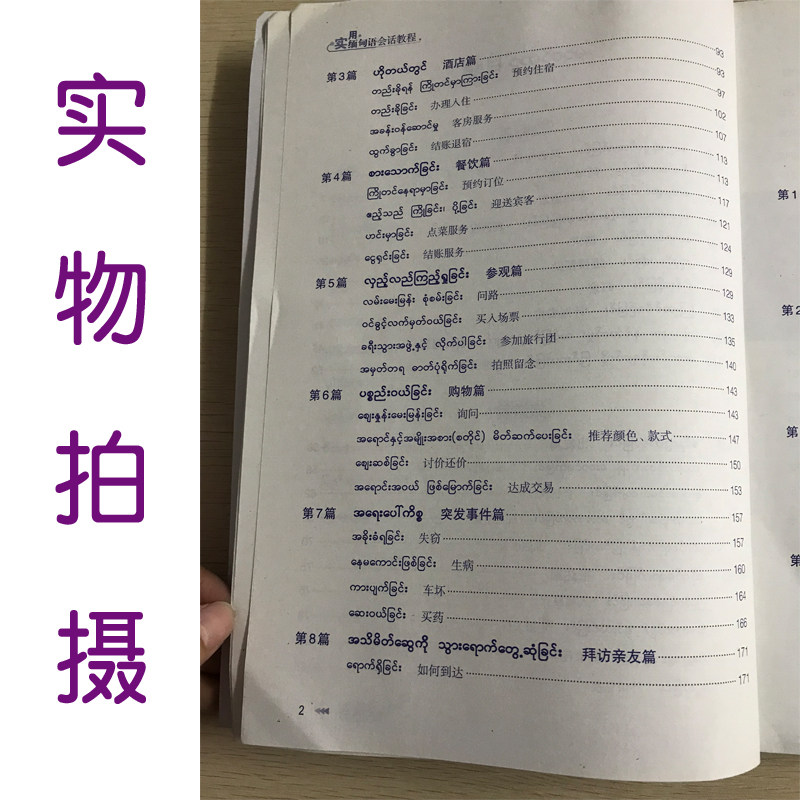 实
物
拍
摄
实用
缅甸语会话教程
第3篇 ဟိုတယ်တွင် 酒店篇 93
တည်းခိုရန် ကြိုတင်မှာကြားခြင်း 预约住宿 93
တည်းခိုခြင်း 办理入住 97
အခန်းဝန်ဆောင်မှု 客房服务 102
ထွက်ခွာခြင်း 结账退宿 107
第4篇 စားသောက်ခြင်း 餐饮篇 113
ကြိုတင်နေရာမှာခြင်း 预约订位 113
ဧည့်သည် ကြိုခြင်း၊ ပို့ခြင်း 迎送宾客 117
ဟင်းမှာခြင်း 点菜服务 121
ငွေရှင်းခြင်း 结账服务 124
第5篇 လှည့်လည်ကြည့်ရှုခြင်း 参观篇 129
လမ်းမေးမြန်း စုံစမ်းခြင်း 问路 129
ဝင်ခွင့်လက်မှတ်ဝယ်ခြင်း 买入场票 133
ခရီးသွားအဖွဲ့နှင့် လိုက်ပါခြင်း 参加旅行团 135
အမှတ်တရ ဓာတ်ပုံရိုက်ခြင်း 拍照留念 140
第6篇 ပစ္စည်းဝယ်ခြင်း 购物篇 143
ဈေးနှုန်းမေးမြန်းခြင်း 询问 143
အရောင်နှင့်အမျိုးအစား(စတိုင်) မိတ်ဆက်ပေးခြင်း 推荐颜色、款式 147
ဈေးဆစ်ခြင်း 讨价还价 150
အရောင်းအဝယ် ဖြစ်မြောက်ခြင်း 达成交易 153
第7篇 အရေးပေါ်ကိစ္စ 突发事件篇 157
အခိုးခံရခြင်း 失窃 157
နေမကောင်းဖြစ်ခြင်း 生病 160
ကားပျက်ခြင်း 车坏 164
ဆေးဝယ်ခြင်း 买药 166
第8篇 အသိမိတ်ဆွေကို သွားရောက်တွေ့ဆုံခြင်း 拜访亲友篇 171
ရောက်ရှိခြင်း 如何到达 171
2
第1
第2
第
第
第